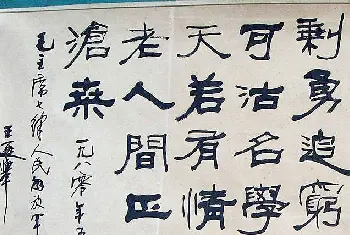 剩勇追窮
可沽名學
天若有情
老人間正
滄桑
一九八零年五
毛主席七律人民解放軍
王遐舉